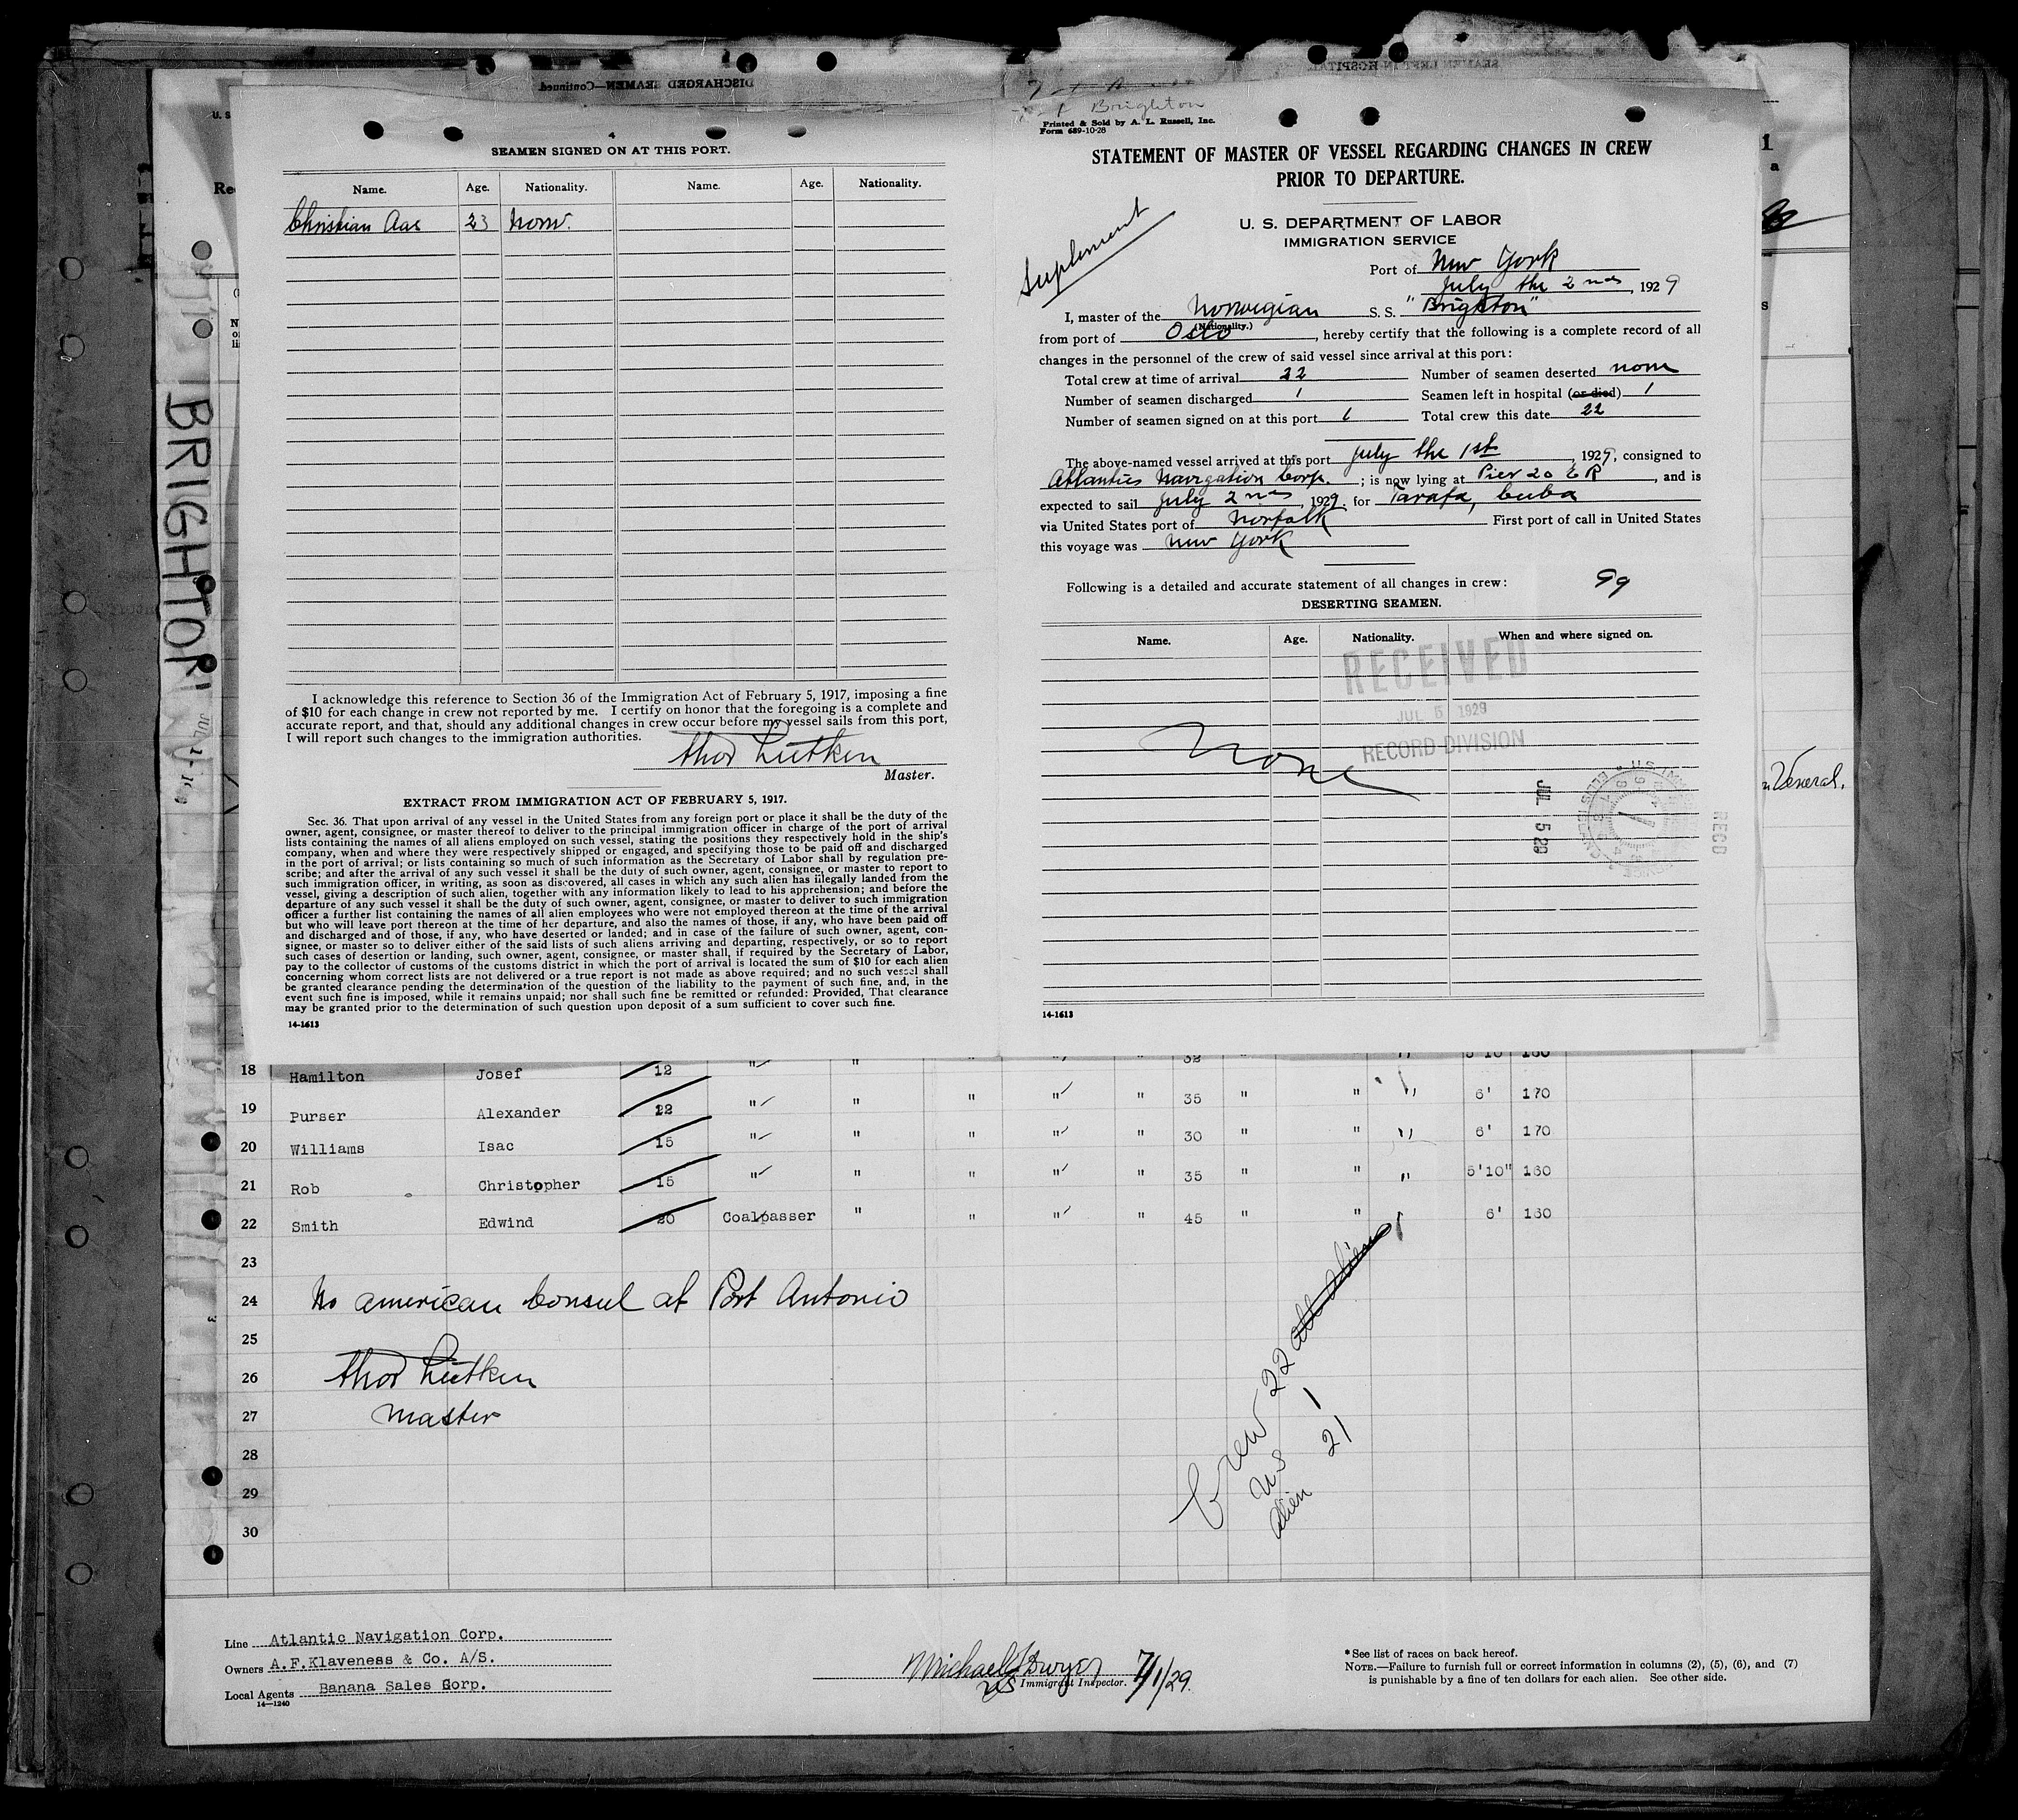 DISCHARGED SEAMEN—Continued
SEAMEN LEFT IN HOSPITAL
BRIGHTON
4
SEAMEN SIGNED ON AT THIS PORT.
Name. Age. Nationality. Name. Age. Nationality.
Christian Aas 23 Norw.
I acknowledge this reference to Section 36 of the Immigration Act of February 5, 1917, imposing a fine
of $10 for each change in crew not reported by me. I certify on honor that the foregoing is a complete and
accurate report, and that, should any additional changes in crew occur before my vessel sails from this port,
I will report such changes to the immigration authorities.
Thor Lütken
Master.
EXTRACT FROM IMMIGRATION ACT OF FEBRUARY 5, 1917.
Sec. 36. That upon arrival of any vessel in the United States from any foreign port or place it shall be the duty of the
owner, agent, consignee, or master thereof to deliver to the principal immigration officer in charge of the port of arrival
lists containing the names of all aliens employed on such vessel, stating the positions they respectively hold in the ship's
company, when and where they were respectively shipped or engaged, and specifying those to be paid off and discharged
in the port of arrival; or lists containing so much of such information as the Secretary of Labor shall by regulation pre-
scribe; and after the arrival of any such vessel it shall be the duty of such owner, agent, consignee, or master to report to
such immigration officer, in writing, as soon as discovered, all cases in which any such alien has illegally landed from the
vessel, giving a description of such alien, together with any information likely to lead to his apprehension; and before the
departure of any such vessel it shall be the duty of such owner, agent, consignee, or master to deliver to such immigration
officer a further list containing the names of all alien employees who were not employed thereon at the time of the arrival
but who will leave port thereon at the time of her departure, and also the names of those, if any, who have been paid off
and discharged and of those, if any, who have deserted or landed; and in case of the failure of such owner, agent, con-
signee, or master so to deliver either of the said lists of such aliens arriving and departing, respectively, or so to report
such cases of desertion or landing, such owner, agent, consignee, or master shall, if required by the Secretary of Labor,
pay to the collector of customs of the customs district in which the port of arrival is located the sum of $10 for each alien
concerning whom correct lists are not delivered or a true report is not made as above required; and no such vessel shall
be granted clearance pending the determination of the question of the liability to the payment of such fine, and, in the
event such fine is imposed, while it remains unpaid; nor shall such fine be remitted or refunded: Provided, That clearance
may be granted prior to the determination of such question upon deposit of a sum sufficient to cover such fine.
14-1613
Brighton
Printed & Sold by A. L. Russell, Inc.
Form 689-10-28
STATEMENT OF MASTER OF VESSEL REGARDING CHANGES IN CREW
PRIOR TO DEPARTURE.
Suplement
U. S. DEPARTMENT OF LABOR
IMMIGRATION SERVICE
Port of New York
July the 2nd, 1929
I, master of the Norwegian S. S. "Brighton"
(Nationality.)
from port of Oslo, hereby certify that the following is a complete record of all
changes in the personnel of the crew of said vessel since arrival at this port:
Total crew at time of arrival 22 Number of seamen deserted none
Number of seamen discharged 1 Seamen left in hospital (or died) 1
Number of seamen signed on at this port 1 Total crew this date 22
The above-named vessel arrived at this port July the 1st, 1929, consigned to
Atlantic Navigation Corp.; is now lying at Pier 20 E R, and is
expected to sail July 2nd, 1929, for Tarafa, Cuba
via United States port of Norfolk First port of call in United States
this voyage was New York
Following is a detailed and accurate statement of all changes in crew: 99
DESERTING SEAMEN.
Name. Age. Nationality. When and where signed on.
RECEIVED
JUL 5 1929
RECORD DIVISION
None
JUL 5 29
RECD
14-1613
General.
18 Hamilton Josef 12 " " " " " 32 " " " 5'10 160
19 Purser Alexander 22 " " " " " 35 " " " 6' 170
20 Williams Isac 15 " " " " " 30 " " " 6' 170
21 Rob Christopher 15 " " " " " 35 " " " 5'10" 160
22 Smith Edwind 20 Coalpasser " " " " 45 " " 6' 160
23
24 No american Consul at Port Antonio
25
26 Thor Lütken
27 Master
28
29
30
Crew 22 all aliens
US 1
Alien 21
Line Atlantic Navigation Corp.
Owners A.F.Klaveness & Co. A/S.
Local Agents Banana Sales Corp.
14—1240
Michael J Dwyer 7/1/29
US Immigrant Inspector.
* See list of races on back hereof.
NOTE.—Failure to furnish full or correct information in columns (2), (5), (6), and (7)
is punishable by a fine of ten dollars for each alien. See other side.